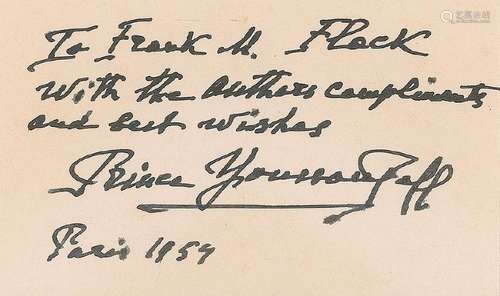 To Frank M. Flock
With the authors compliments
and best wishes
Prince Youssoupoff
Paris 1954